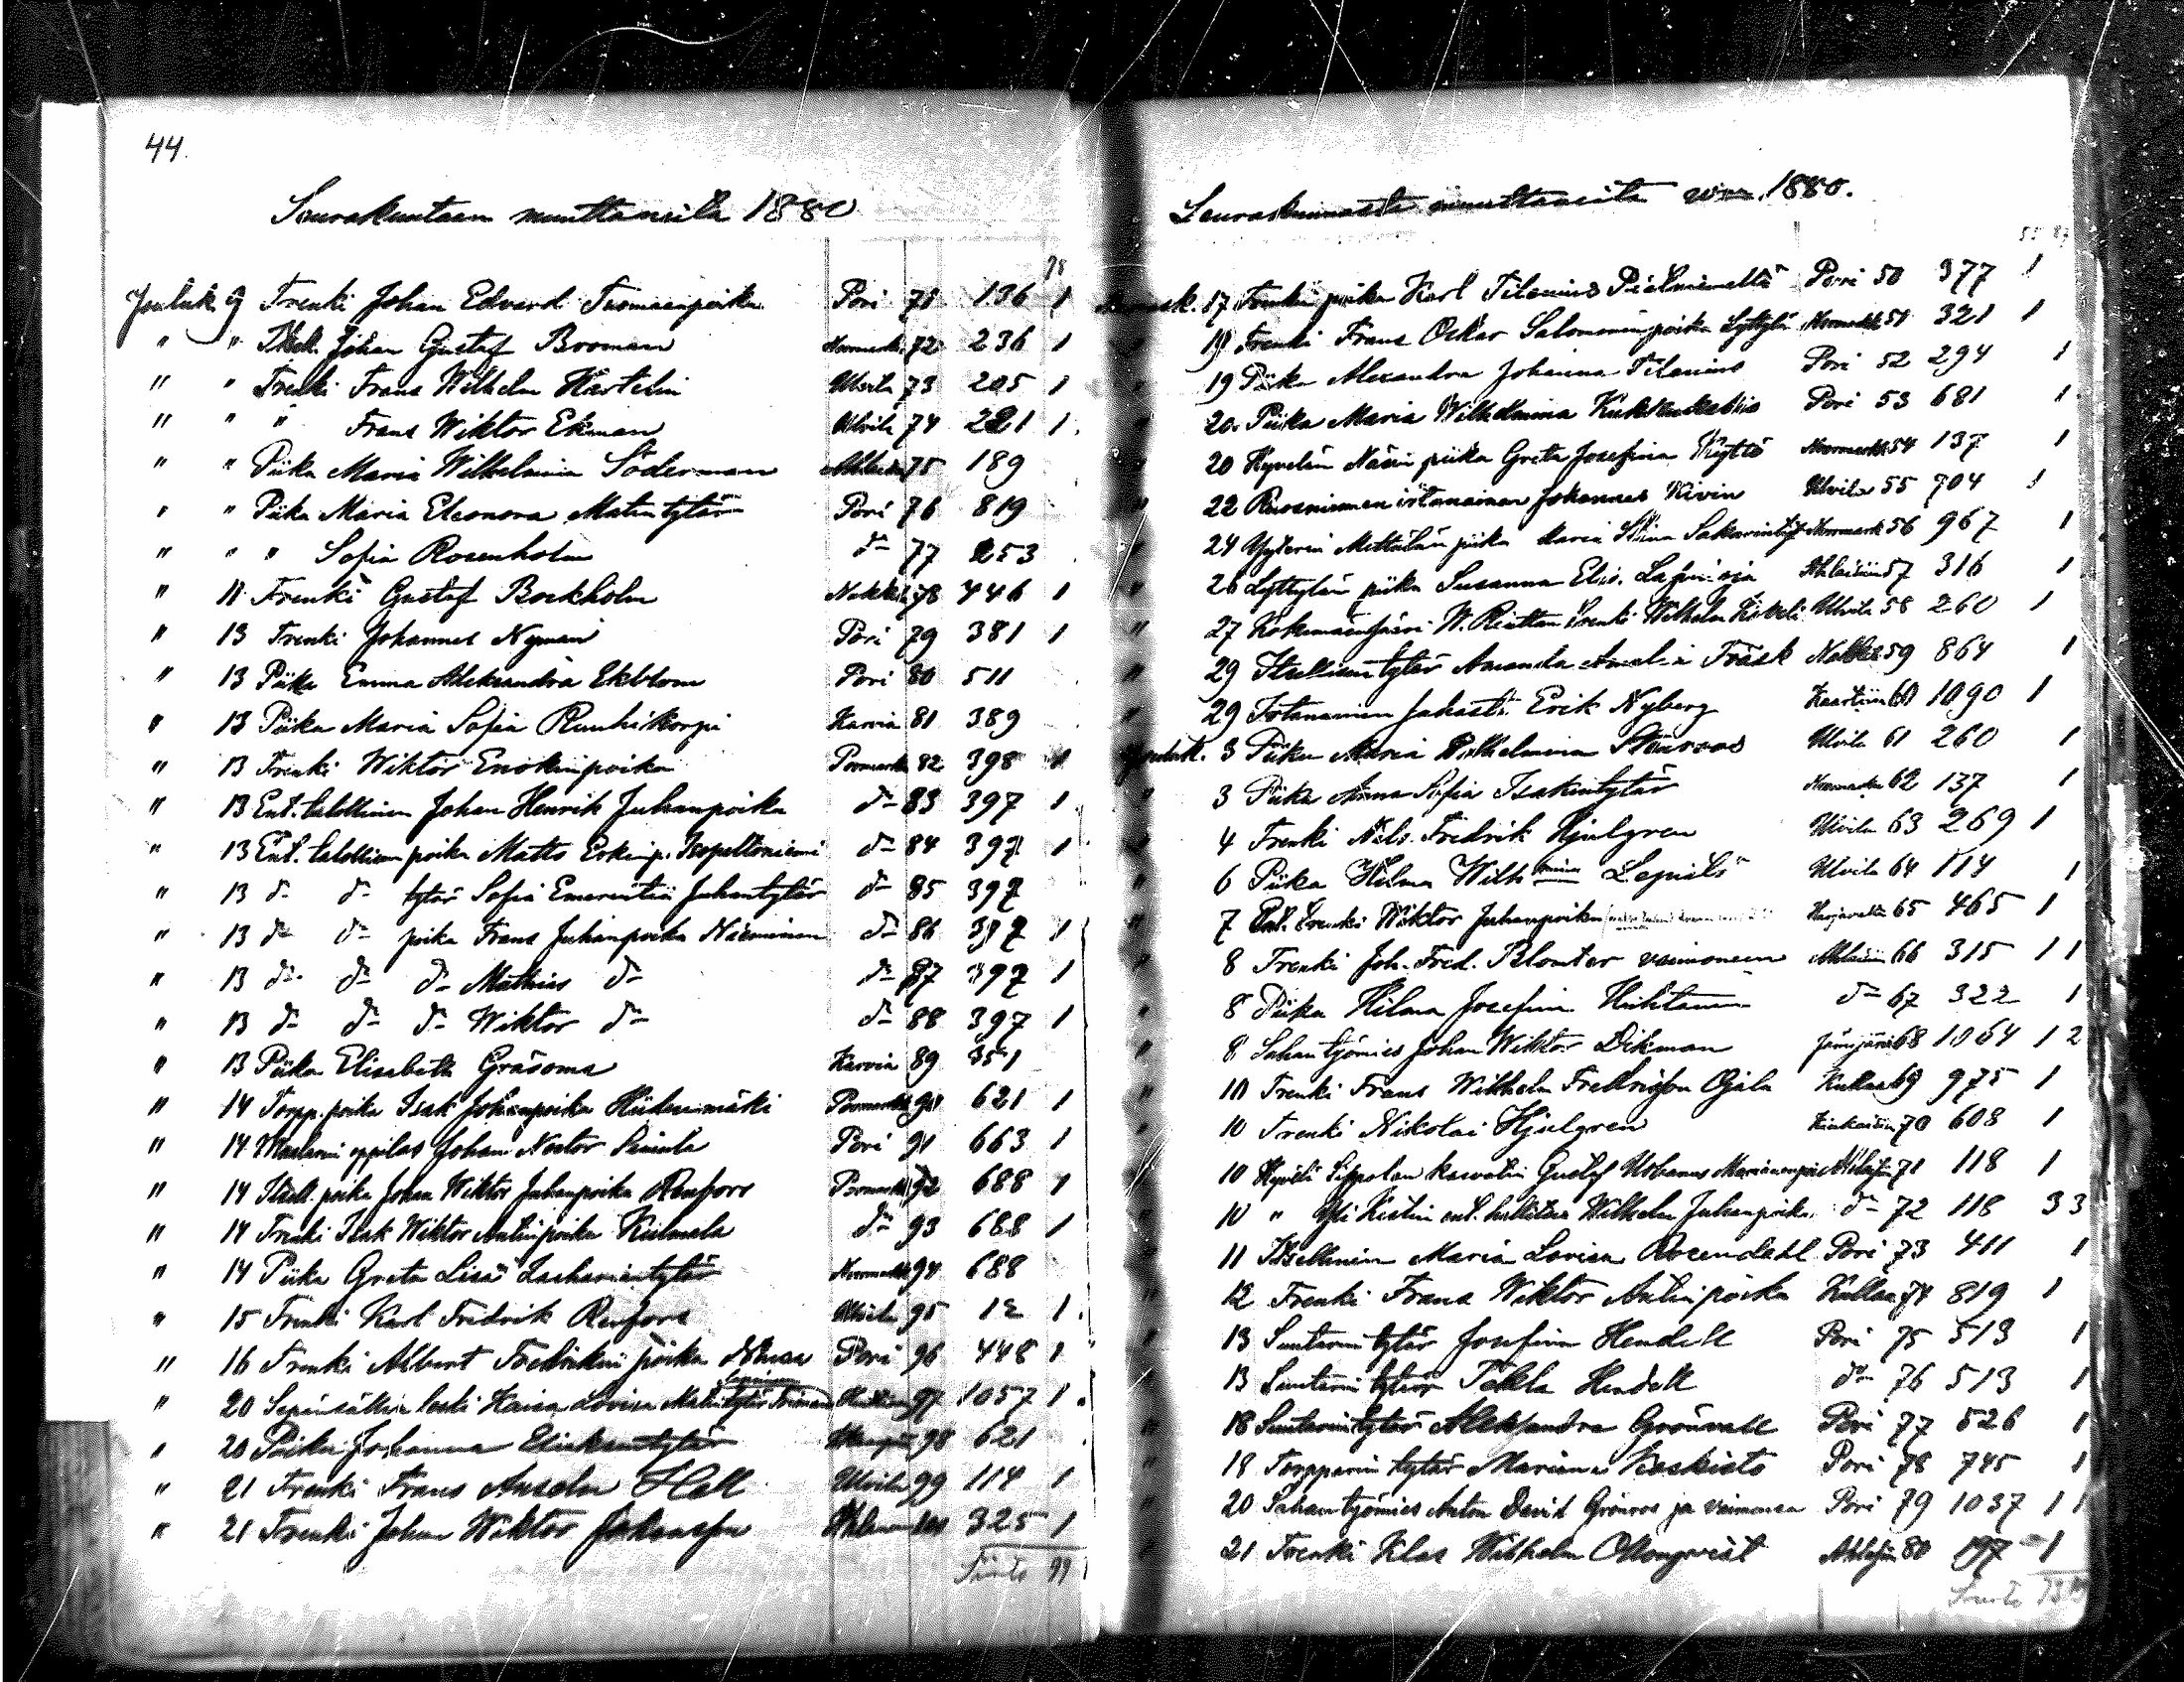 44.
Seurakuntaan muuttaneita 1880
78
Jouluk. 9 Trenki Johan Edvard Tuomaanpoika Pori 71 136 1
" " Itsell. Johan Gustaf Booman Normarkk. 72 236 1
" " Trenki Frans Wilhelm Hartelin Ulvila 73 205 1
" " " Frans Wiktor Ekman Ulvila 74 221 1
" " Piika Maria Wilhelmina Söderman Ahlainen 75 189
" " Piika Maria Eleonora Matintytär Pori 76 819
" " " Sofia Rosenholm d:o 77 253
" 11 Trenki Gustaf Backholm Nakkila 78 446 1
" 13 Trenki Johannes Nyman Pori 79 381 1
" 13 Piika Emma Aleksandra Ekblom Pori 80 511
" 13 Piika Maria Sofia Ruuhikorpi Karvia 81 389
" 13 Trenki Wiktor Enokinpoika Pormarkku 82 398 1
" 13 Ent. talollinen Johan Henrik Juhanpoika d:o 83 397 1
" 13 Ent. talollisen poika Matts Erkinp. Isopeltoniemi d:o 84 397 1
" 13 d:o d:o tytär Sofia Emerentia Juhantytär d:o 85 397
" 13 d:o d:o poika Frans Juhanpoika Nieminen d:o 86 397 1
" 13 d:o d:o d:o Mathias d:o d:o 87 397 1
" 13 d:o d:o d:o Wiktor d:o d:o 88 397 1
" 13 Piika Elisabeth Gräsoma Karvia 89 351
" 14 Torpp. poika Isak Johanpoika Hiidenmäki Pormarkk. 90 621 1
" 14 Maalarin oppilas Johan Nestor Pori 91 663 1
" 14 Itsell. poika Johan Wiktor Juhanpoika Renfors Pormarkk. 92 688 1
" 14 Trenki Isak Wiktor Antinpoika Kiilmala d:o 93 688 1
" 14 Piika Greta Lisa Zachariantytär Normarkk. 94 688
" 15 Trenki Karl Fredrik Renfors Ulvila 95 12 1
" 16 Trenki Albert Fredrikin poika Pori 96 448 1
" 20 Sepänsällin leski Kaisa Lovisa Matintytär 97 1057 1
" 20 Piika Johanna 98 621
" 21 Trenki Frans Anselm Hall Ulvila 99 114 1
" 21 Trenki Johan Wiktor Johansson Ahlainen 100 325 1
Siirto 99
Seurakunnasta muuttaneita v:na 1880.
55 87
17 Trenki poika Karl Tilenius Pietniemeltä Pori 50 377 1
19 Trenki Frans Oskar Salomoninpoika Lyttylä Normarkk. 51 321 1
" 19 Piika Alexandra Johanna Tilenius Pori 52 294 1
" 20 Piika Maria Wilhelmina Pori 53 681 1
" 20 Hyvelän Näsin piika Greta Josefina Kyttö Normarkk. 54 137 1
" 22 Ruosniemen itänainen Johannes Kivin Ulvila 55 704 1
24 Yyterin Mettälän piika Maria Stina Sakarintyt. Normark. 56 967 1
" 26 Lyttylän piika Susanna Elis. Ahlaisiin 57 316 1
" 27 Kokemäensaari W. Reittun trenki Wilhelm Ulvila 58 260 1
" 29 Itsellisen tytär Amanda Amalia Träsk Nakkila 59 864 1
" 29 Sotamies Juhasti Erik Nyberg Kaartiin 60 1090 1
Jouluk. 3 Piika Maria Wilhelmina Stenroos Ulvila 61 260 1
" 3 Piika Anna Sofia Isakintytär Normarkku 62 137 1
4 Trenki Nils Fredrik Hjulgren Ulvila 63 269 1
" 6 Piika Hilma Wilhelmina Lepistö Ulvila 64 114 1
" 7 Ent. trenki Wiktor Juhanpoika Harjavalta 65 465 1
" 8 Trenki Joh. Fred. Blomster vaimoneen Ahlaisiin 66 315 1 1
" 8 Piika Hilma Josefina Huhtanen d:o 67 322 1
" 8 Sahantyömies Johan Wiktor Dikman Jämijärvi 68 1064 1 2
10 Trenki Frans Wilhelm Fredriksson Ojala Kullaa 69 975 1
10 Trenki Nikolai Hjulgren Kankaisiin 70 608 1
10 Hyvelä Sippolan kasvatin Gustaf Urbanus Marianenpoi Ahlaisiin 71 118 1
" 10 " Yli Kistin ent. hallitsia Wilhelm Juhanpoika d:o 72 118 3 3
11 Itsellinen Maria Lovisa Rosendahl Pori 73 411 1
" 12 Trenki Frans Wiktor Antinpoika Kullaa 74 819 1
" 13 Suutarin tytär Josefina Hendell Pori 75 513 1
13 Suutarin tytär Tekla Hendell d:o 76 513 1
" 18 Suutarin tytär Aleksandra Grönvall Pori 77 526 1
" 18 Torpparin tytär Mariana Koskisto Pori 78 745 1
20 Sahantyömies Anton David Grönroos ja vaimonsa Pori 79 1037 1 1
21 Trenki Klas Wilhelm Ahlaisiin 80 197 1
Siirto